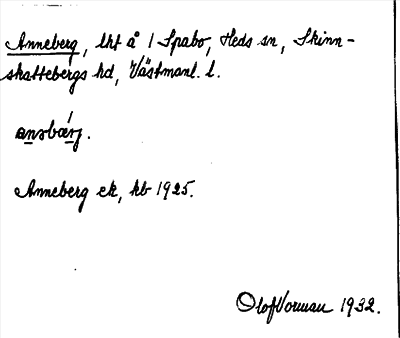 Anneberg, lht å 1 Spabo, Heds sn, Skinn-
skattebergs hd, Västmanl. l.
ansbærj.
Anneberg ek, kb 1925.
Olof Vorman 1932.